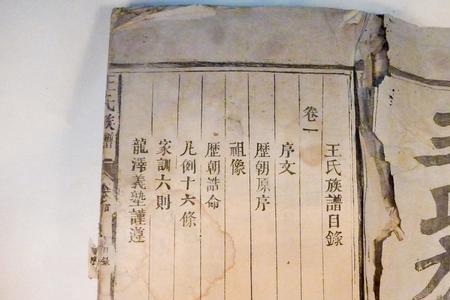 王氏族譜目錄
卷一
序文
歷朝原序
祖像
歷朝誥命
凡例十六條
家訓六則
龍澤義塾謹遵
王氏族譜